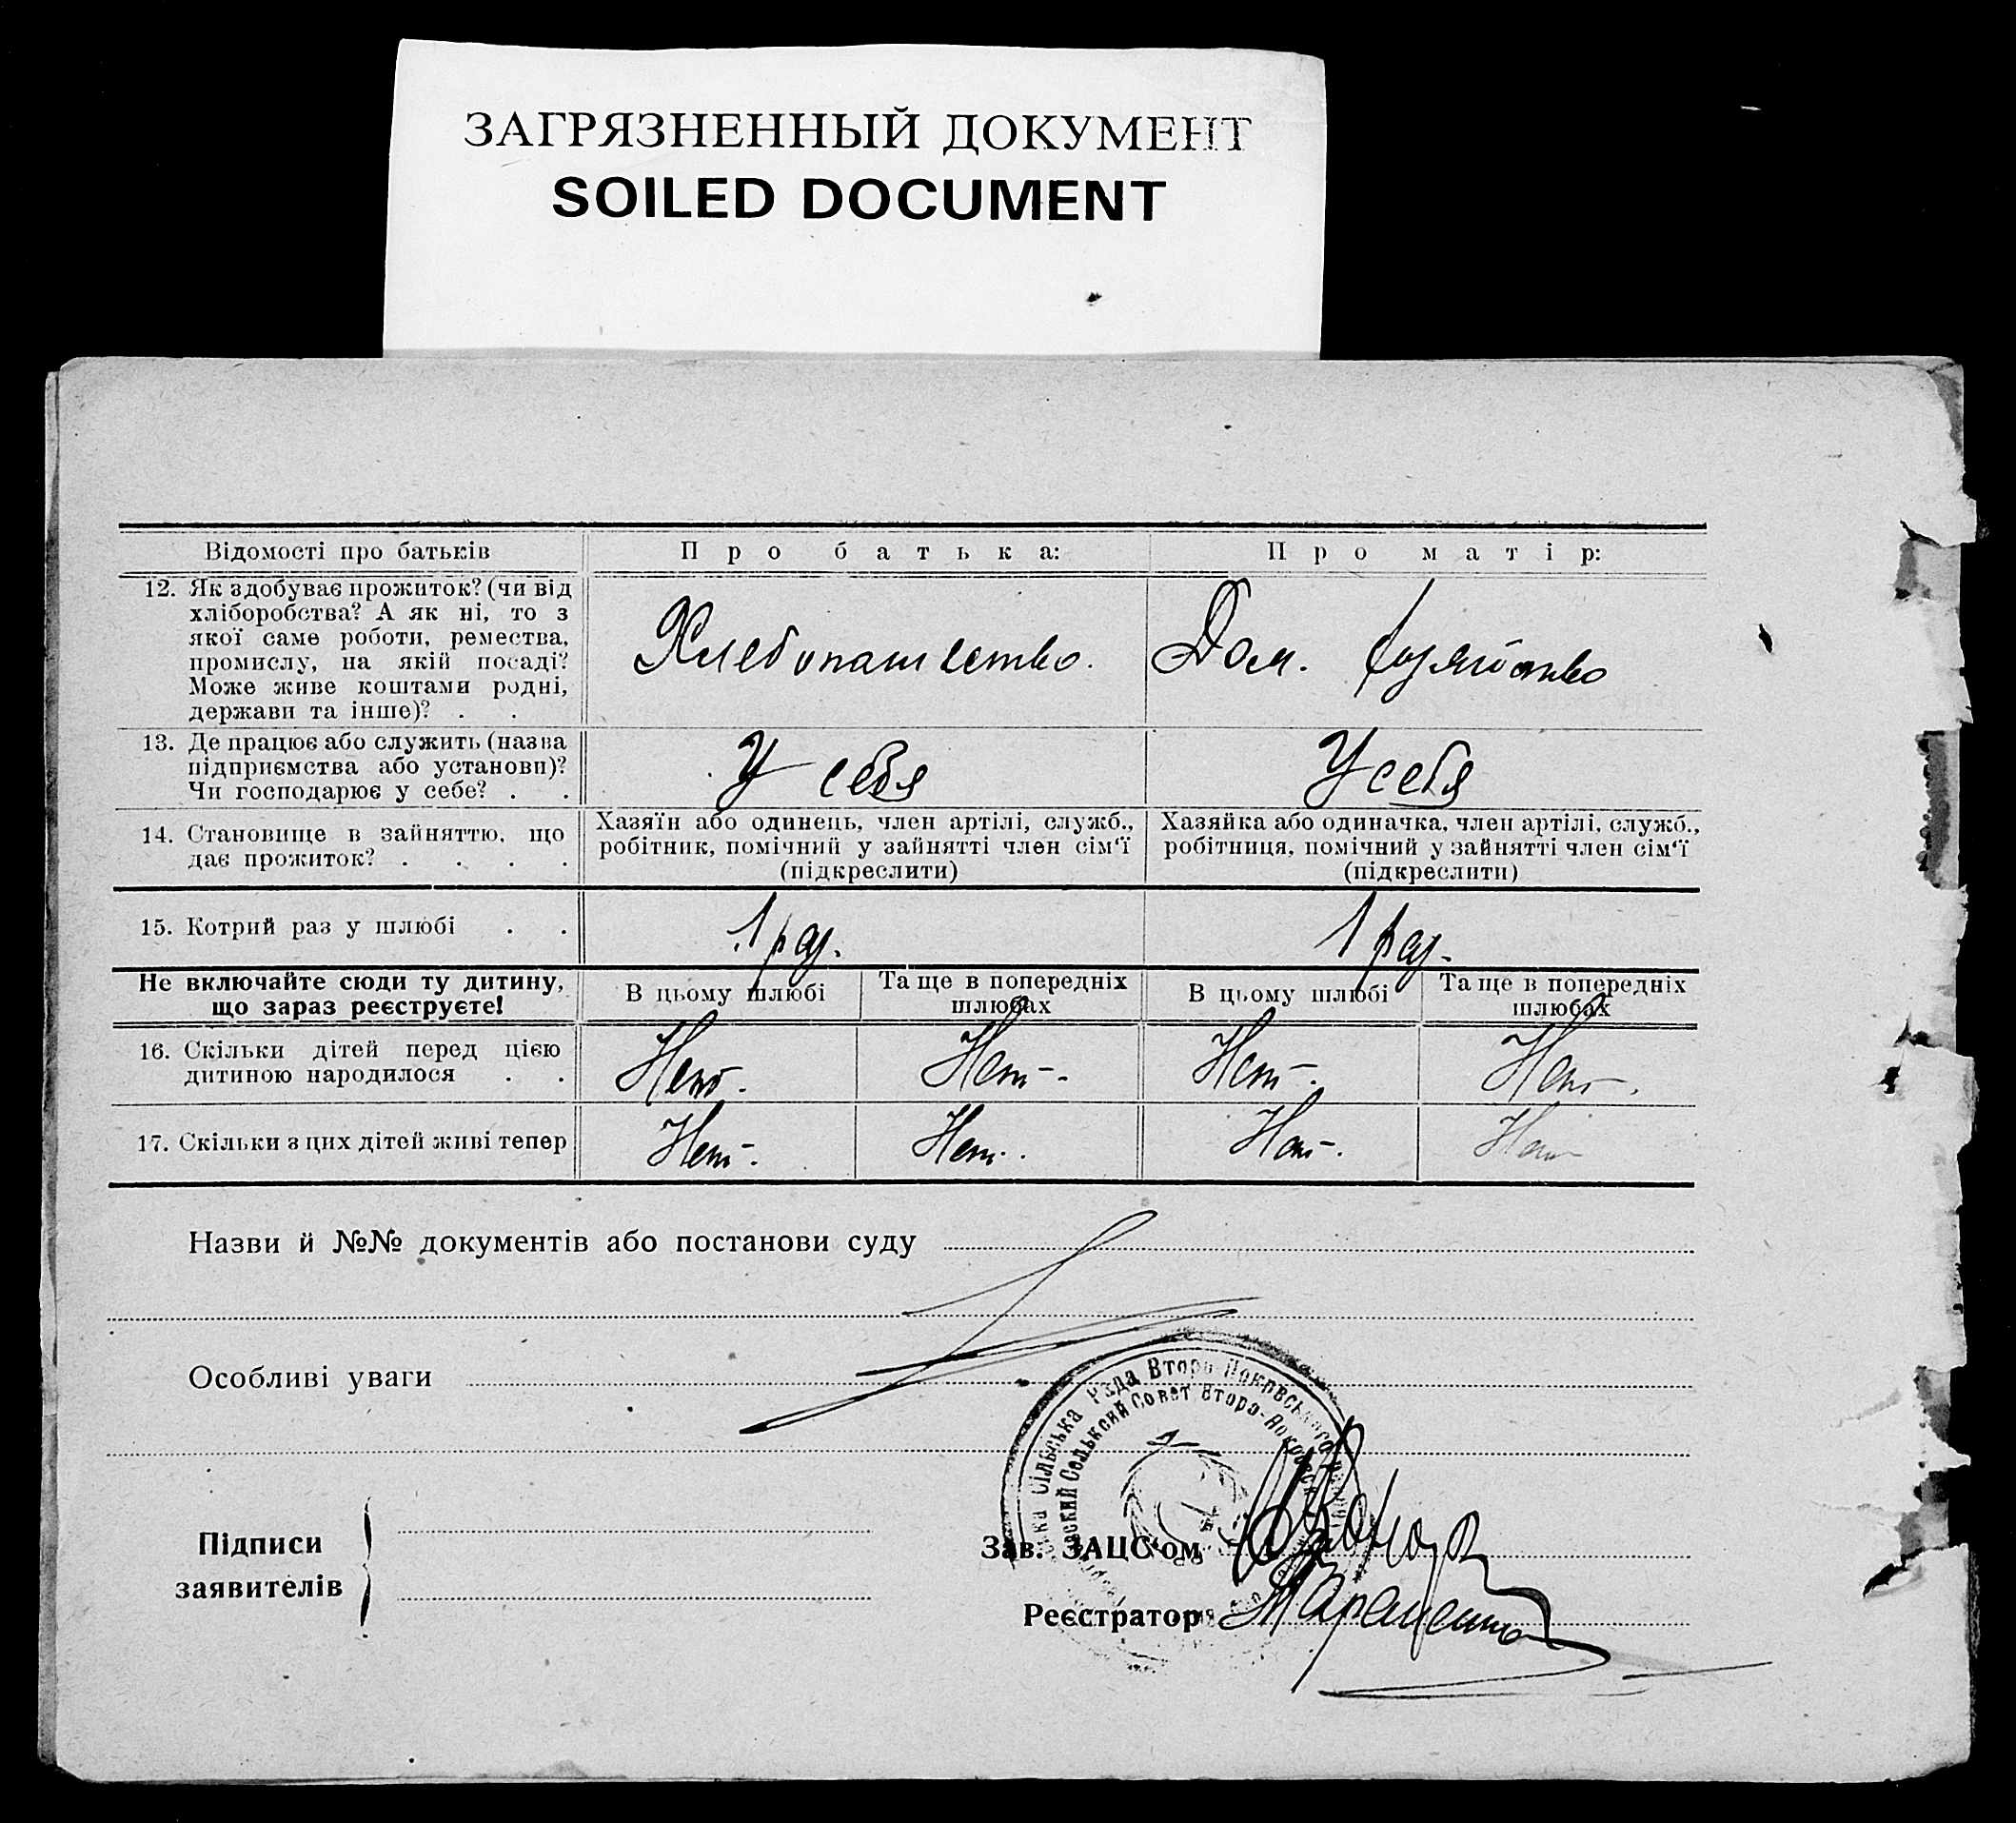 ЗАГРЯЗНЕННЫЙ ДОКУМЕНТ
SOILED DOCUMENT
Відомості про батьків
Про батька:
Про матір:
12. Як здобуває прожиток? (чи від
хліборобства? А як ні, то з
якої саме роботи, ремества,
промислу, на якій посаді?
Може живе коштами родні,
держави та інше)? . .
Хлебопашество.
Дом. хозяйство
13. Де працює або служить (назва
підприємства або установи)?
Чи господарює у себе? . .
У себя
У себя
14. Становище в зайняттю, що
дає прожиток? . . . .
Хазяїн або одинець, член артілі, служб.,
робітник, помічний у зайнятті член сім'ї
(підкреслити)
Хазяйка або одиначка, член артілі, служб.,
робітниця, помічний у зайнятті член сім'ї
(підкреслити)
15. Котрий раз у шлюбі . .
1 раз.
1 раз.
Не включайте сюди ту дитину,
що зараз реєструєте!
В цьому шлюбі
Та ще в попередніх
шлюбах
В цьому шлюбі
Та ще в попередніх
шлюбах
16. Скільки дітей перед цією
дитиною народилося . .
Нет.
Нет.
Нет.
Нет.
17. Скільки з цих дітей живі тепер
Нет.
Нет.
Нет.
Нет
Назви й №№ документів або постанови суду
Особливі уваги
сільська Рада Второ-Покровського
Сельский Совет Второ-Покровск
Підписи
заявителів
Зав. ЗАЦС'ом
Реєстратор